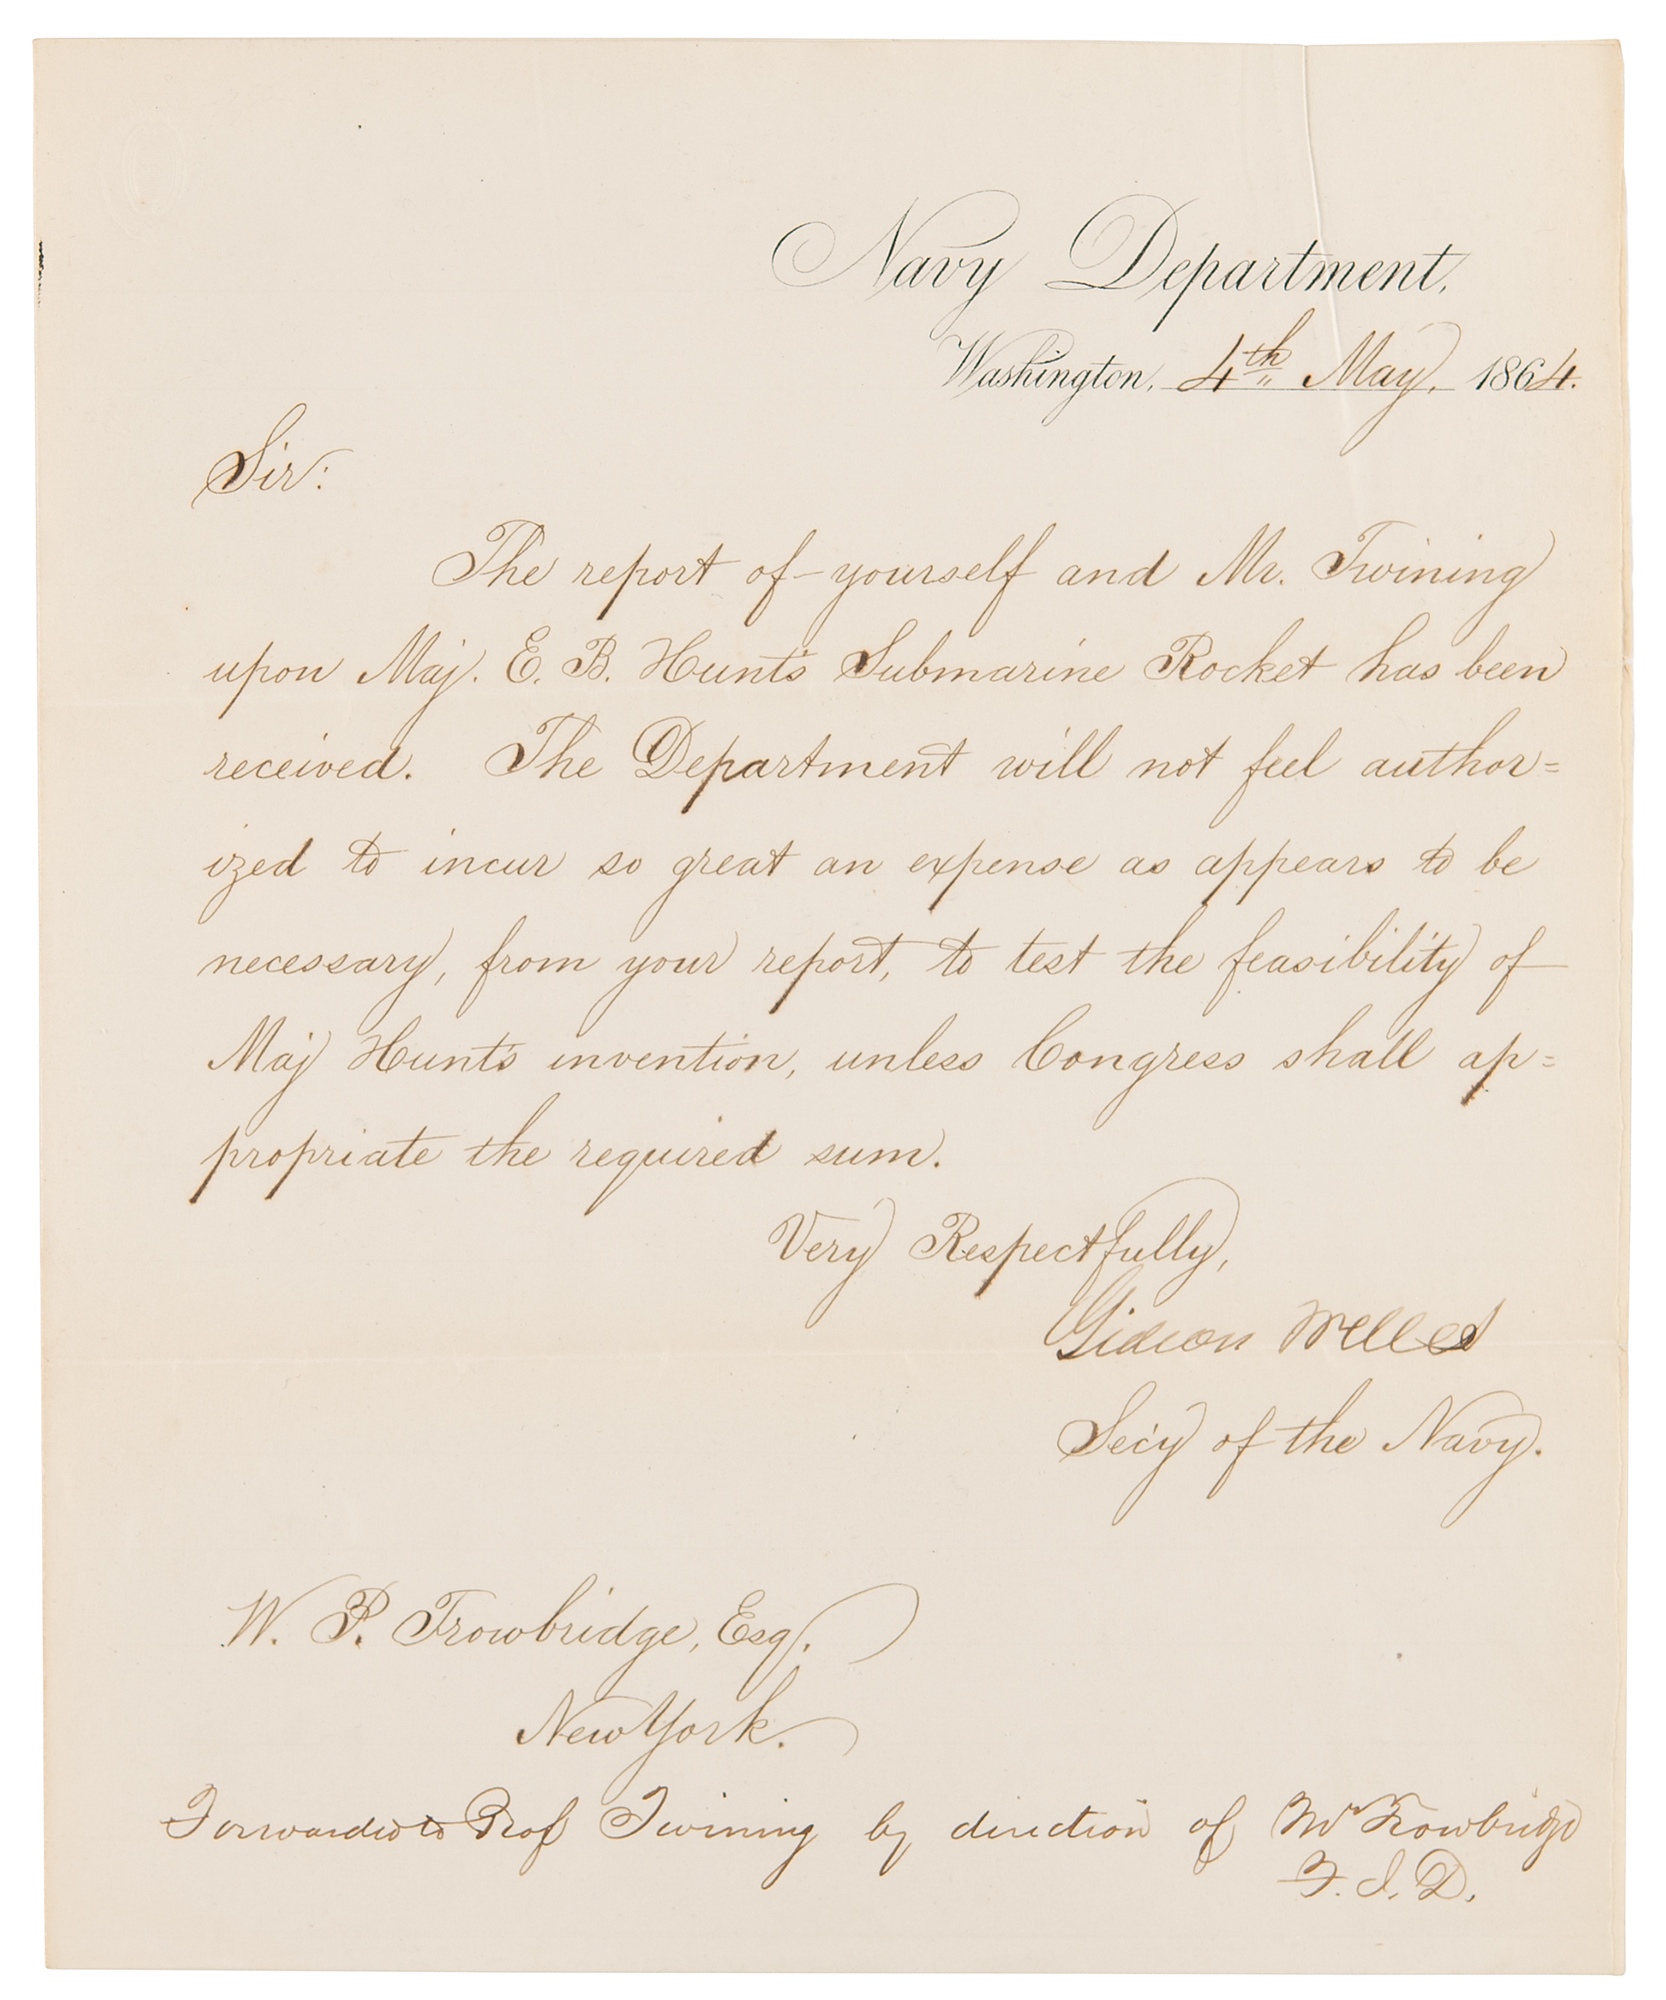 Navy Department,
Washington, 4th May, 1864.
Sir:
The report of yourself and Mr. Twining
upon Maj. E. B. Hunt's Submarine Rocket has been
received. The Department will not feel author=
ized to incur so great an expense as appears to be
necessary, from your report, to test the feasibility of
Maj Hunt's invention, unless Congress shall ap=
propriate the required sum.
Very Respectfully,
Gideon Welles
Sec'y of the Navy.
W. P. Trowbridge, Esq.
New York.
Forwarded to Prof Twining by direction of Mr Trowbridge
F. J. D.